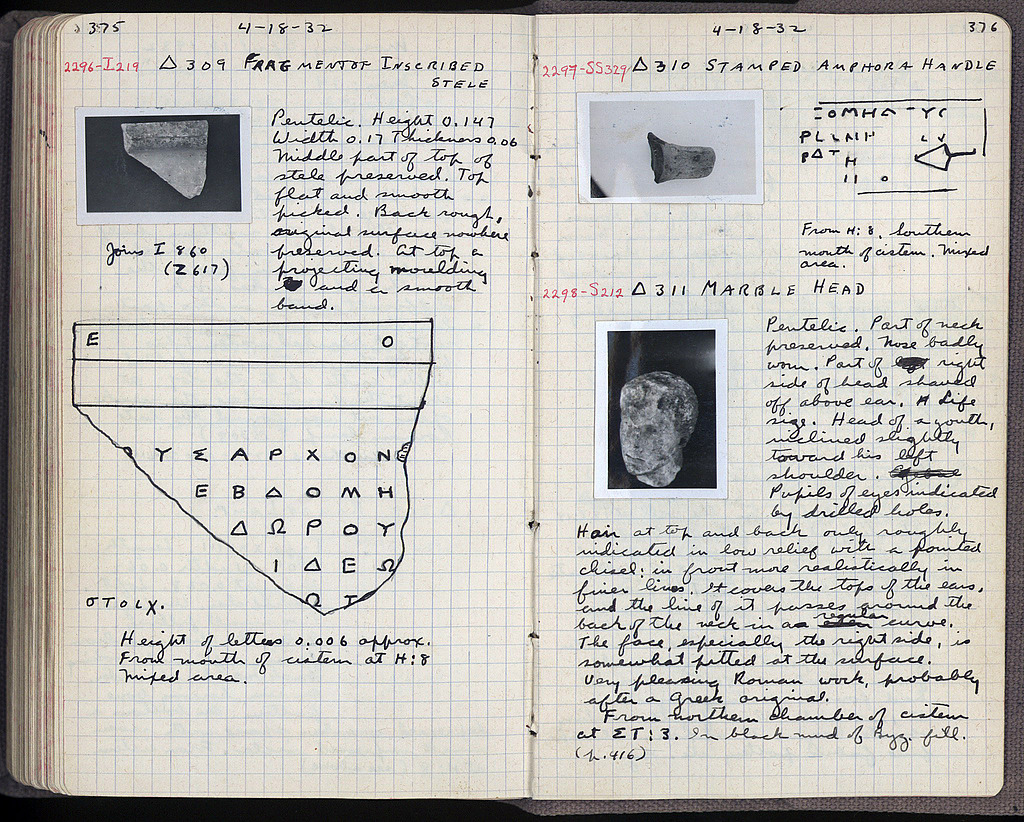 375 4-18-32
2296-I219 Δ309 FRAGMENT OF INSCRIBED
STELE
Pentelic. Height 0.147
Width 0.17 Thickness 0.06
Middle part of top of
stele preserved. Top
flat and smooth
picked. Back rough,
original surface nowhere
preserved. At top a
projecting moulding
and a smooth
band.
Joins I 860
(Z617)
Ε Ο
Ο Υ Σ Α Ρ Χ Ο Ν
Ε Β Δ Ο Μ Η
Δ Ω Ρ Ο Υ
Ι Δ Ε Ω
Ω Ι
ΣΤΟΙΧ.
Height of letters 0.006 approx.
From mouth of cistern at H:8
Mixed area.
4-18-32 376
2297-SS329 Δ310 STAMPED AMPHORA HANDLE
From H:8. Southern
mouth of cistern. Mixed
area.
2298-S212 Δ311 MARBLE HEAD
Pentelic. Part of neck
preserved. Nose badly
worn. Part of right
side of head shaved
off above ear. Life
size. Head of a youth,
inclined slightly
toward his left
shoulder.
Pupils of eyes indicated
by drilled holes.
Hair at top and back only roughly
indicated in low relief with a pointed
chisel: in front more realistically in
finer lines. It covers the tops of the ears,
and the line of it passes around the
back of the neck in a regular curve.
The face, especially the right side, is
somewhat pitted at the surface.
Very pleasing Roman work, probably
after a Greek original.
From northern chamber of cistern
at ΣΤ:3. In black mud of Byz. fill.
(p. 416)